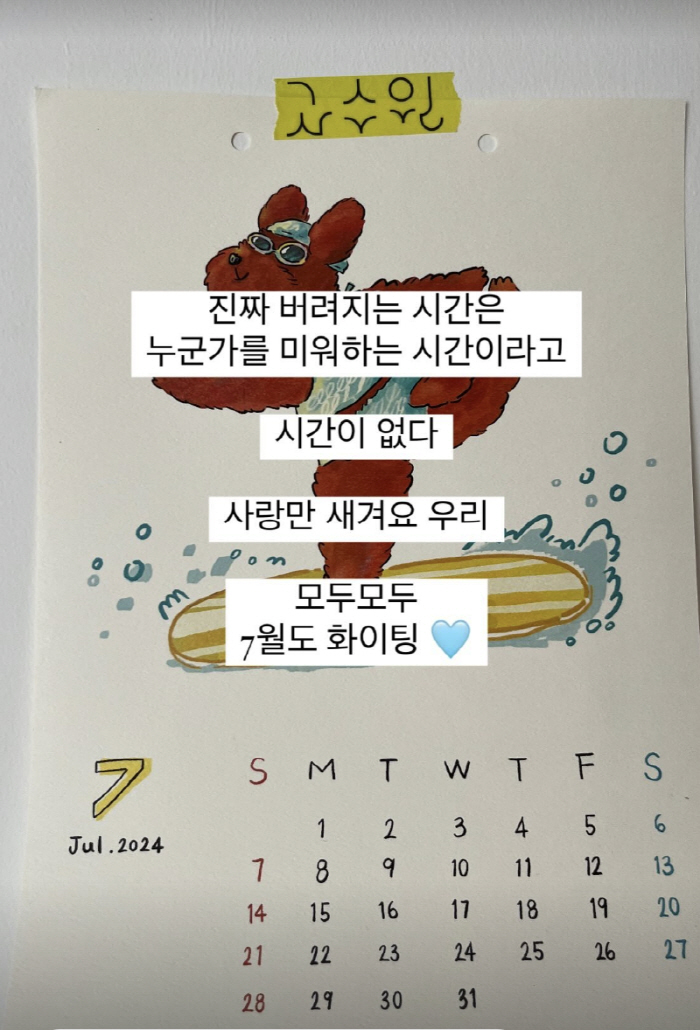 진짜 버려지는 시간은
누군가를 미워하는 시간이라고
시간이 없다
사랑만 새겨요 우리
모두모두
7월도 화이팅 🩵
7
Jul.2024
S M T W T F S
1 2 3 4 5 6
7 8 9 10 11 12 13
14 15 16 17 18 19 20
21 22 23 24 25 26 27
28 29 30 31